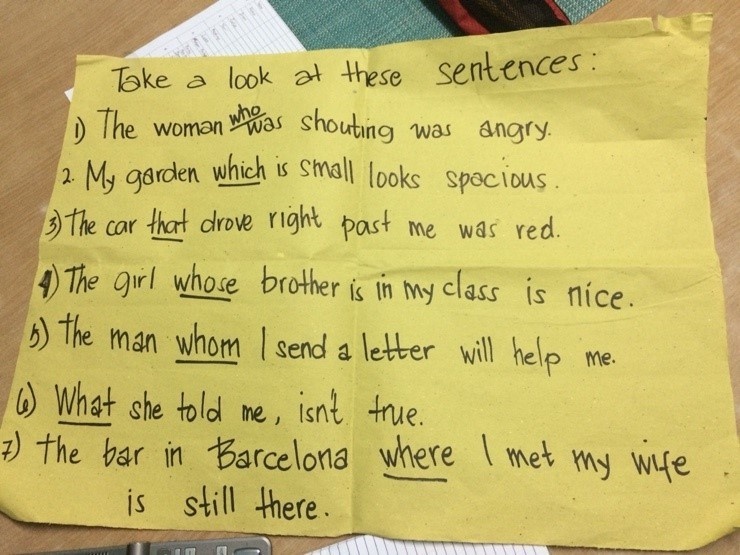 Take a look at these sentences:
1) The woman who was shouting was angry.
2. My garden which is small looks spacious.
3) The car that drove right past me was red.
4) The girl whose brother is in my class is nice.
5) The man whom I send a letter will help me.
6) What she told me, isn't true.
7) The bar in Barcelona where I met my wife
is still there.